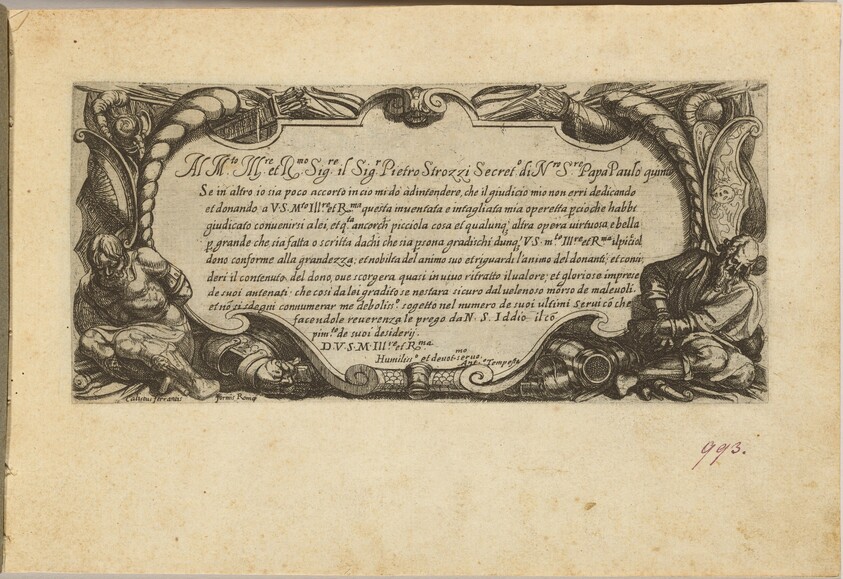 Al M.to Ill.re et R.mo Sig.re il Sig.r Pietro Strozzi Secret.o di N.ro S.re Papa Paulo quinto
Se in altro io sia poco accorto in cio mi do àd intendere, che il giudicio mio non erri dedicando
et donando a V.S. M.to Ill.re et R.ma questa inuentata e intagliata mia operetta pcioche habbi
giudicato conuenirsi a lei, et q.ta ancorch picciola cosa et qualunq altra opera virtuosa, e bella
p grande che sia fatta o scritta da chi che sia psona gradischi dunq V.S. m.to Ill.re et R.ma il picciol
dono conforme alla grandezza, et nobiltà del animo suo et riguardi l'animo del donanti, et consi,
deri il contenuto del dono, oue scorgera quasi in uiuo ritratto il ualore, et gloriose imprese
de suoi antenati, che cosi da lei gradito se nestara sicuro dal uelenoso morso de maleuoli.
et no si sdegni connumerar me debolis.o sogetto nel numero de suoi ultimi Serui co che
facendole reuerenza le prego da N.S. Iddio il co
pim.to de suoi desiderij.
D.V.S.M. Ill.re et R.ma
Humilis.o et deuot.mo seruo
Ant.o Tempesta
Callistus ferrantis formis Romæ
993.